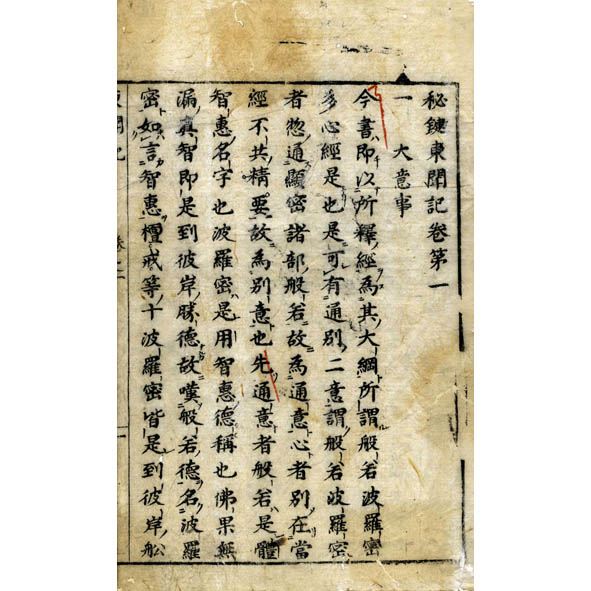 秘鍵東聞記卷第一
一 大意事
今書即以所釋經為其大綱所謂般若波羅密
多心經是也是可有通別二意謂般若波羅密
者惣通顯密諸部般若故為通意心者別在當
經不共精要故為別意也先通意者般若是體
智惠名字也波羅密是用智惠德稱也佛果無
漏真智即是到彼岸勝德故嘆般若德名波羅
密如言智惠檀戒等十波羅密皆是到彼岸船